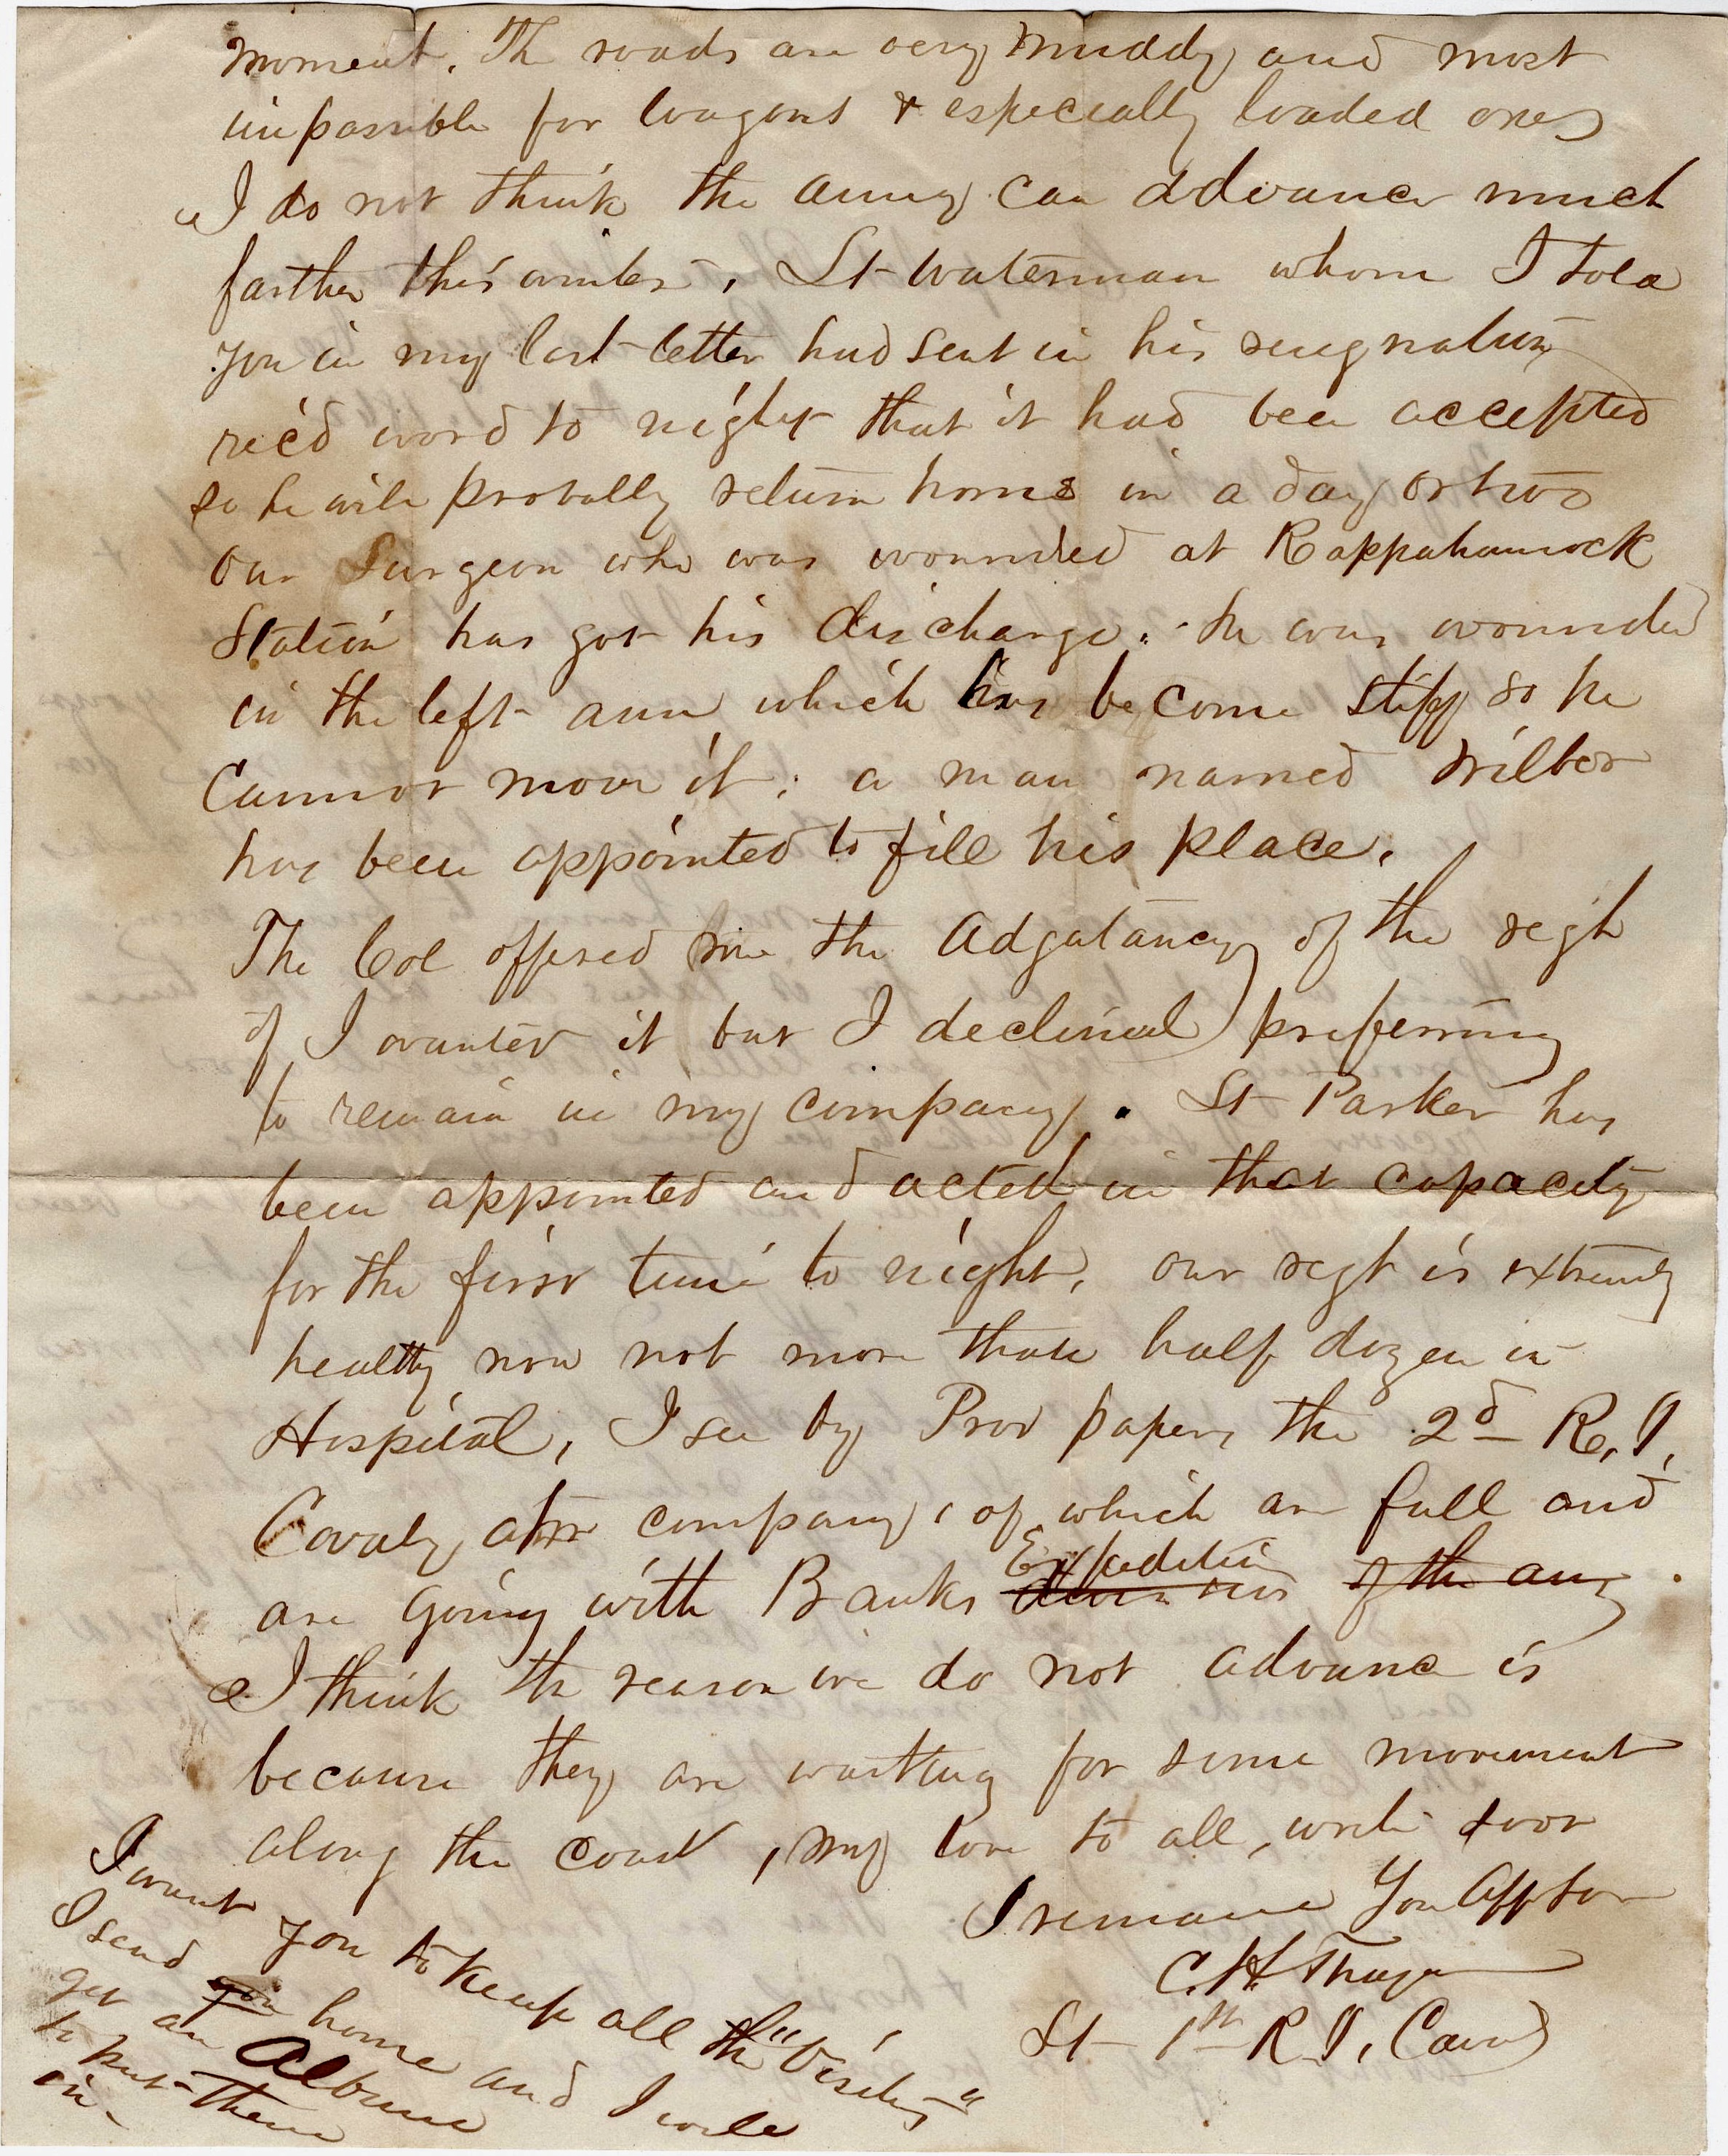 moment. The roads are very muddy and most
impassible for wagons & especially loaded ones
I do not think the army can advance much
farther this winter. Lt Waterman whom I told
you in my last letter had sent in his resignation
rec'd word to night that it had been accepted
so he will probally return home in a day or two
our Surgeon who was wounded at Rappahannock
Station has got his discharge. he was wounded
in the left arm which has become stiff so he
cannot move it; a man named Wilbor
has been appointed to fill his place.
The Col offered me the Adgatancy of the regt
if I wanted it but I declined preferring
to remain in my company. Lt Parker has
been appointed and acted in that capacity
for the first time to night, our regt is extremely
healthy now not more than half dozen in
Hospital, I see by Prov papers the 2d R.I.
Cavaly company's of which are full and
are going with Banks Expedition of the army.
I think the reason we do not advance is
because they are waitting for some movement
along the coast, my love to all, write soon
I remain You Aff Son
C. H. Thayer
Lt 1st R.I. Cav
I want you to keep all the "Visites"
I send you home and I will
get an Album
to put them
in